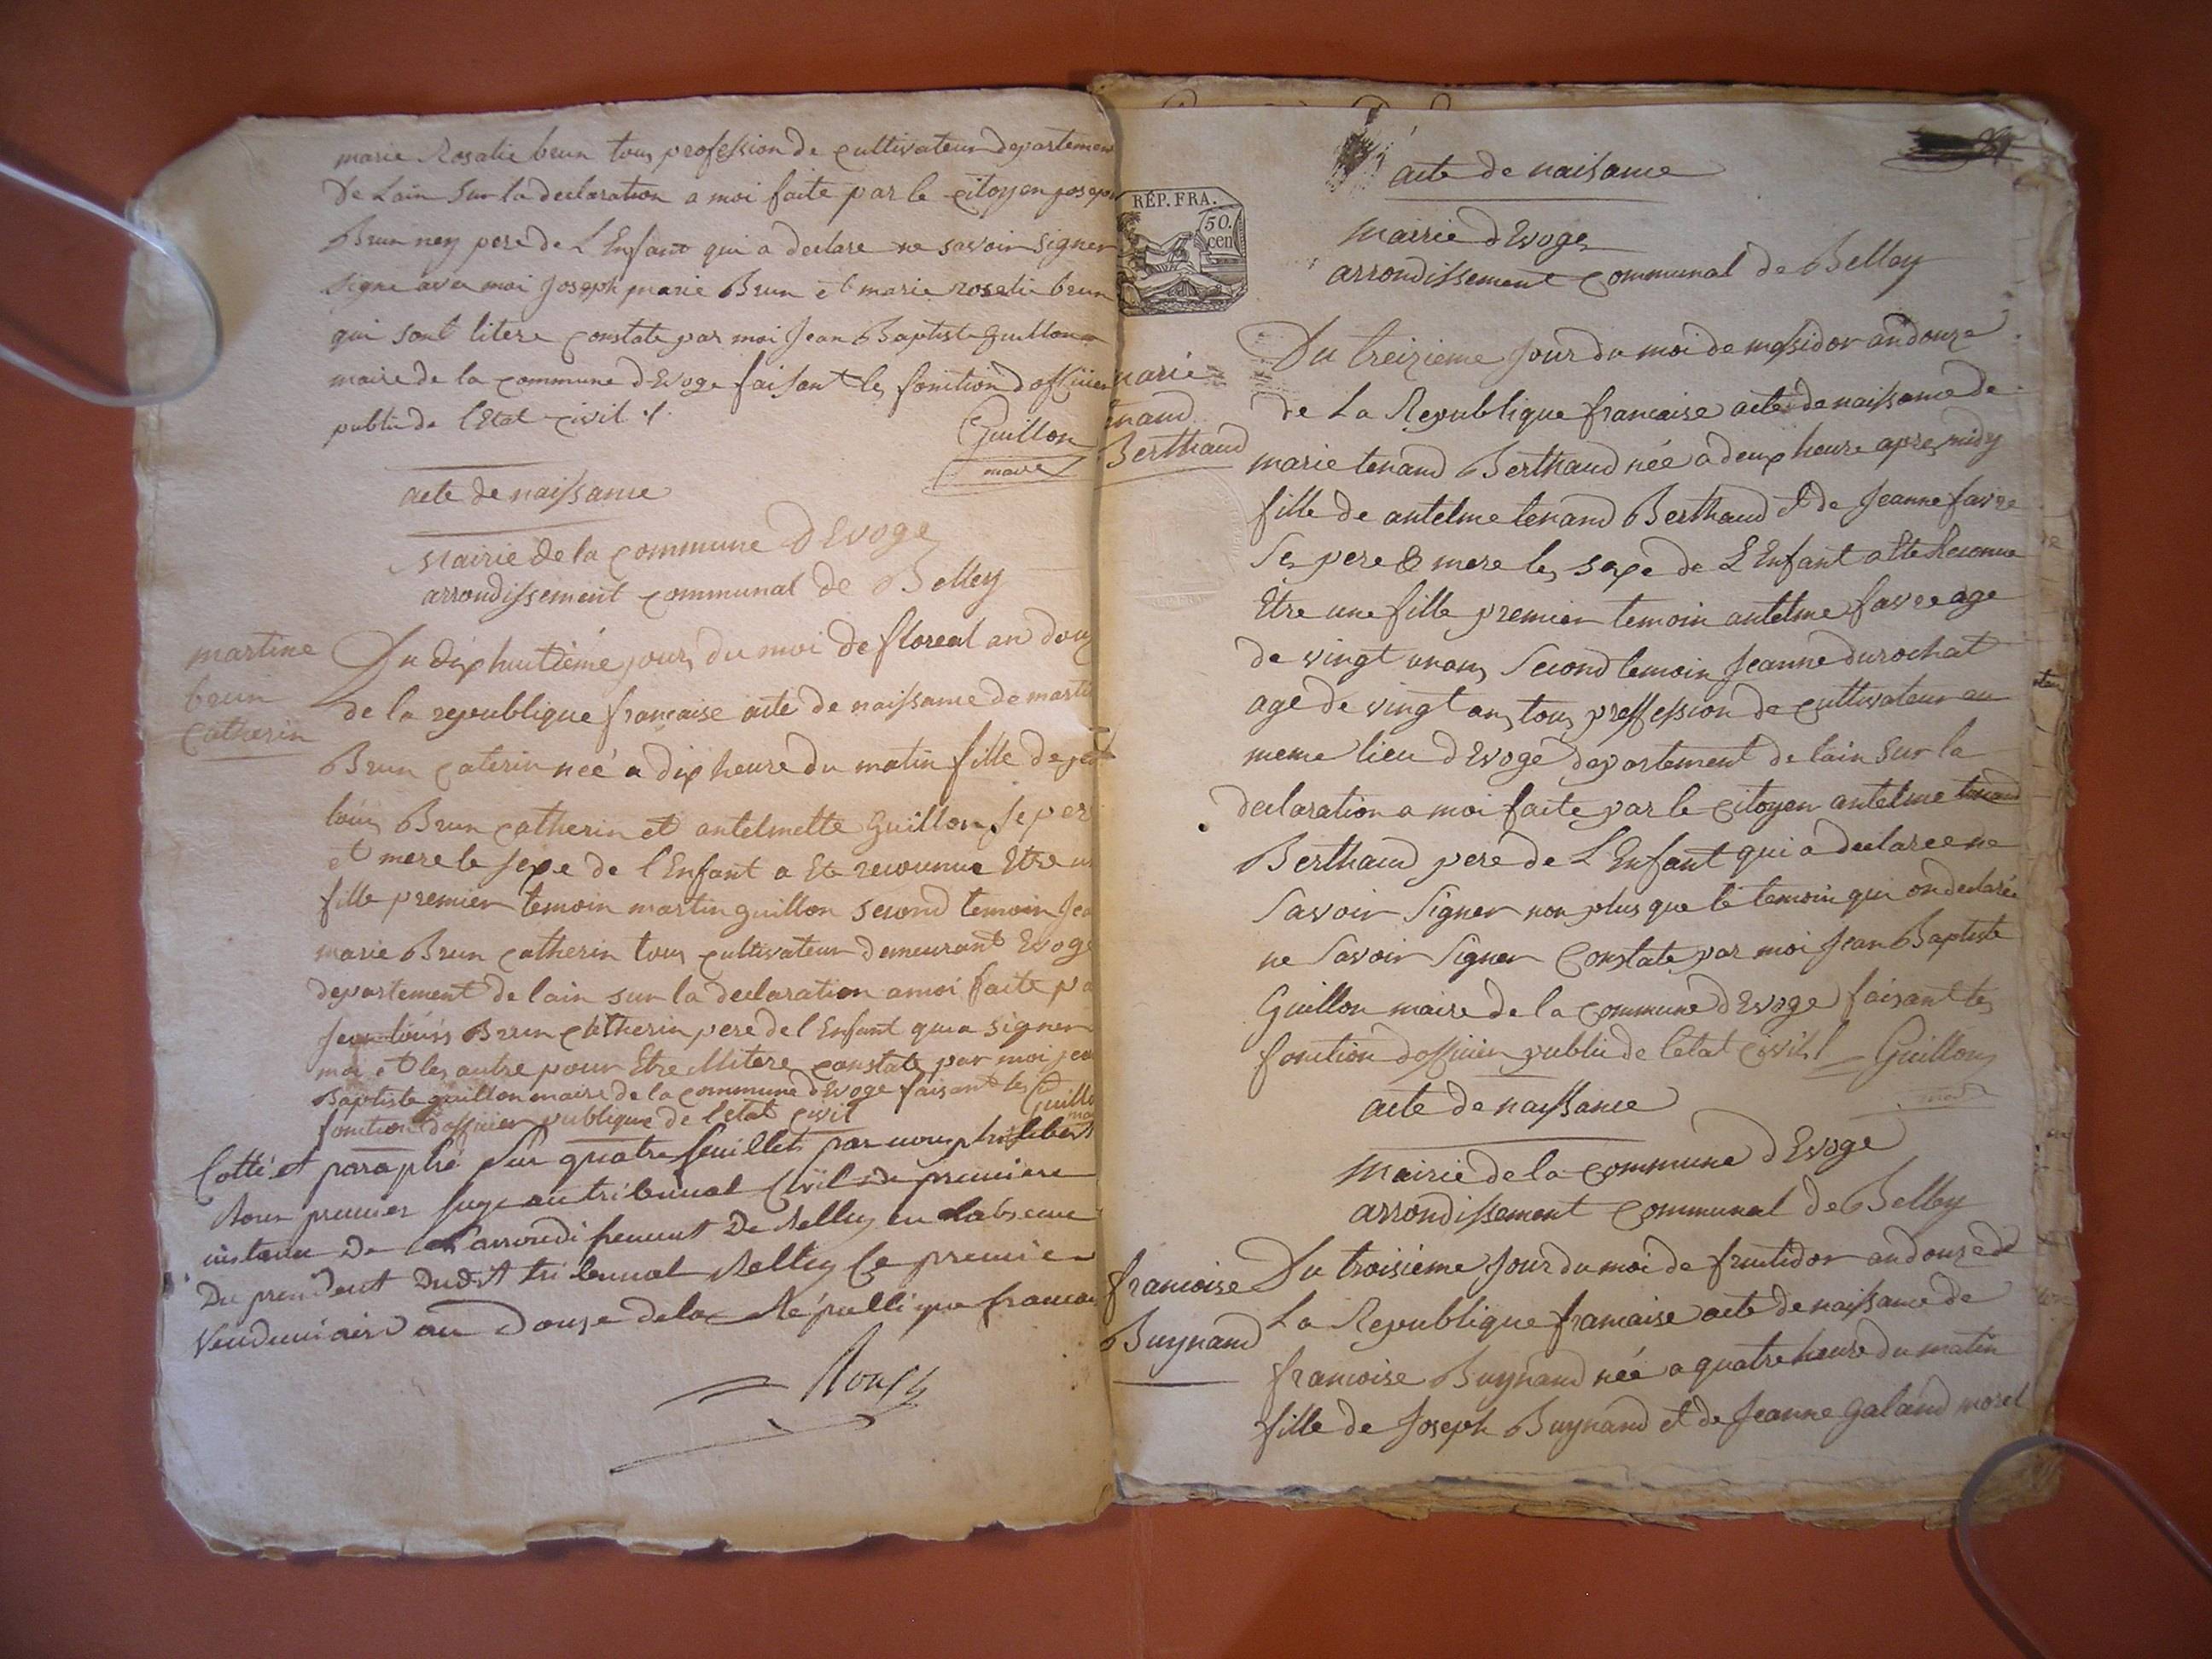 marie Rosalie brun tous profession de cultivateur departemen
de Lain Sur la declaration a moi faite par le citoyen joseph
Brun ney pere de L'Enfant qui a declare ne savoir signer
signe avec moi Joseph marie Brun et marie rosalie brun
qui sont litere constate par moi Jean Baptiste guillon
maire de la commune d'Evoge faisant les fonction d'officier
public de l'Etat civil
Guillon
maire
acte de naissance
Mairie de la commune D'Evoge
arrondissement communal de Belley
martine
brun
Catherin
Du dix huitieme jour du moi de floreal an douz
de la republique francaise acte de naissance de marti
Brun caterin neé a dix heure du matin fille de
louis Brun catherin et antelmette Guillon se per
et mere le sexe de l'Enfant a Ete reconnue Etre u
fille premier temoin martin guillon second temoin Jea
marie Brun catherin tous cultivateur demeurant Evoge
departement de lain sur la declaration a moi faite pa
Jean louis Brun Catherin pere de l'Enfant qui a signer
moi et les autre pour Etre litere constate par moi jea
Baptiste guillon maire de la commune d'Evoge faisant les
fonction d'officier publique de l'etat civil
Guillo
Cotté et paraphé sur quatre feuillets par nous philibert
premier juge au tribunal Civil de premiere
instance de l'arrondissement de Belley en l'absence
Du president Dudit tribunal Belley le premier
Vendemiaire an Douze de la République francai
RÉP. FRA.
50.
cen
acte de naisance
Mairie d'Evoge
arrondissement communal de Belley
marie
tenand
Berthaud
Du treizieme Jour du moi de mesidor an douze
de La Republique francaise acte de naissance de
marie tenand Berthaud née a deux heure apres midy
fille de antelme tenand Berthaud et de Jeanne favre
Se pere & mere les sexe de L'Enfant a Ete Reconnue
Etre une fille premier temoin antelme favre age
de vingt unans Second temoin Jeanne durochat
age de vingt ans tous proffession de cultivateur au
meme lieu d'Evoge departement de lain Sur la
declaration a moi faite par le citoyen antelme tenand
Berthaud pere de L'Enfant qui a declaree ne
Savoir Signer non plus que le temoin qui on declarée
ne Savoir Signer Constate par moi Jean Baptiste
Guillon maire de la commune d'Evoge faisant les
fonction d'officier public de l'etat civil Guillon
acte de naissance
Mairie de la commune d'Evoge
arrondissement communal de Belley
francoise
Buynand
Du troisieme Jour du moi de fructidor an douze de
La Republique francaise acte de naissance de
francoise Buynand née a quatre heure du matin
fille de Joseph Buynand et de Jeanne galand morel